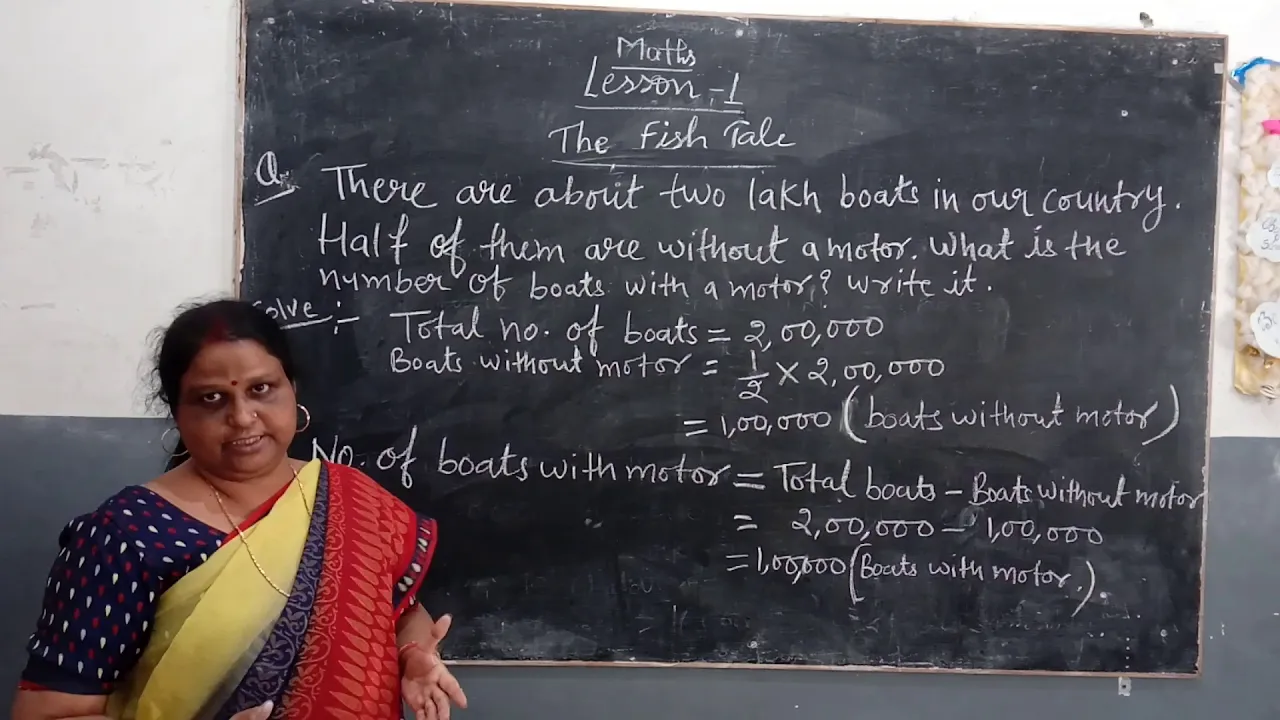 Maths
Lesson-1
The Fish Tale
Q. There are about two lakh boats in our country.
Half of them are without a motor. What is the
number of boats with a motor? Write it.
Solve :-
Total no. of boats = 2,00,000
Boats without motor = 1/2 × 2,00,000
= 1,00,000 (boats without motor)
No. of boats with motor = Total boats - Boats without motor
= 2,00,000 - 1,00,000
= 1,00,000 (Boats with motor.)